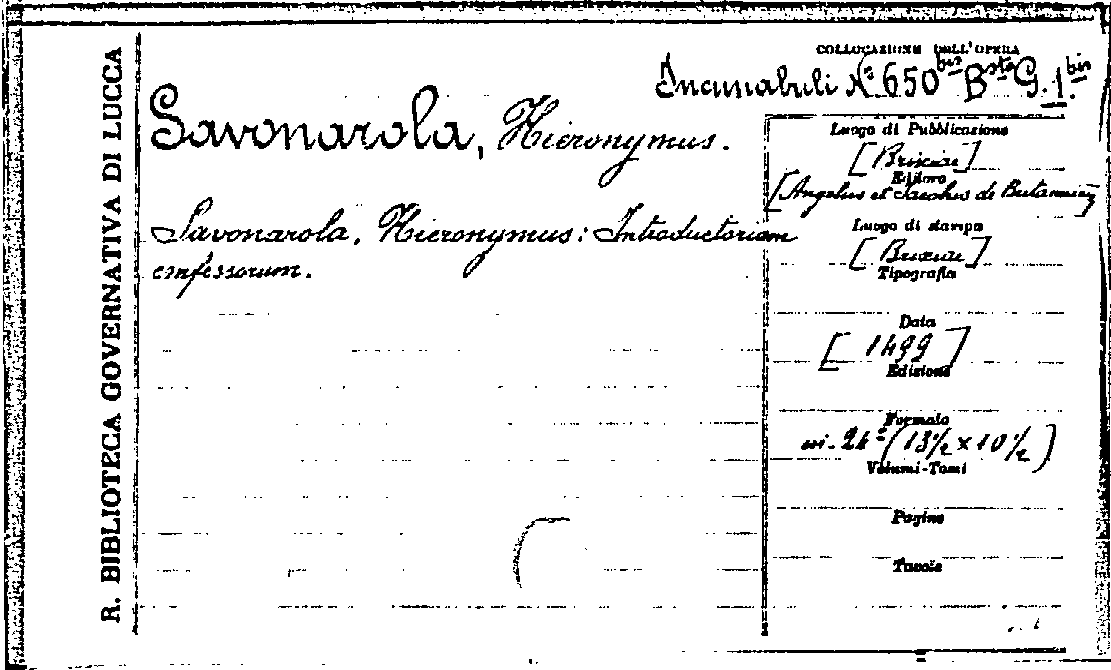 R. BIBLIOTECA GOVERNATIVA DI LUCCA
COLLOCAZIONE DELL'OPERA
Incunabuli N° 650 bis Bsta G. 1. bis
Savonarola, Hieronymus.
Savonarola, Hieronymus: Introductorium
confessorum.
Luogo di Pubblicazione
[Brixiae]
Editore
[Angelus et Jacobus de Britannicis]
Luogo di stampa
[Brixiae]
Tipografia
Data
[1499]
Edizione
Formato
in-24° (13½ × 10½)
Volumi-Tomi
Pagine
Tavole